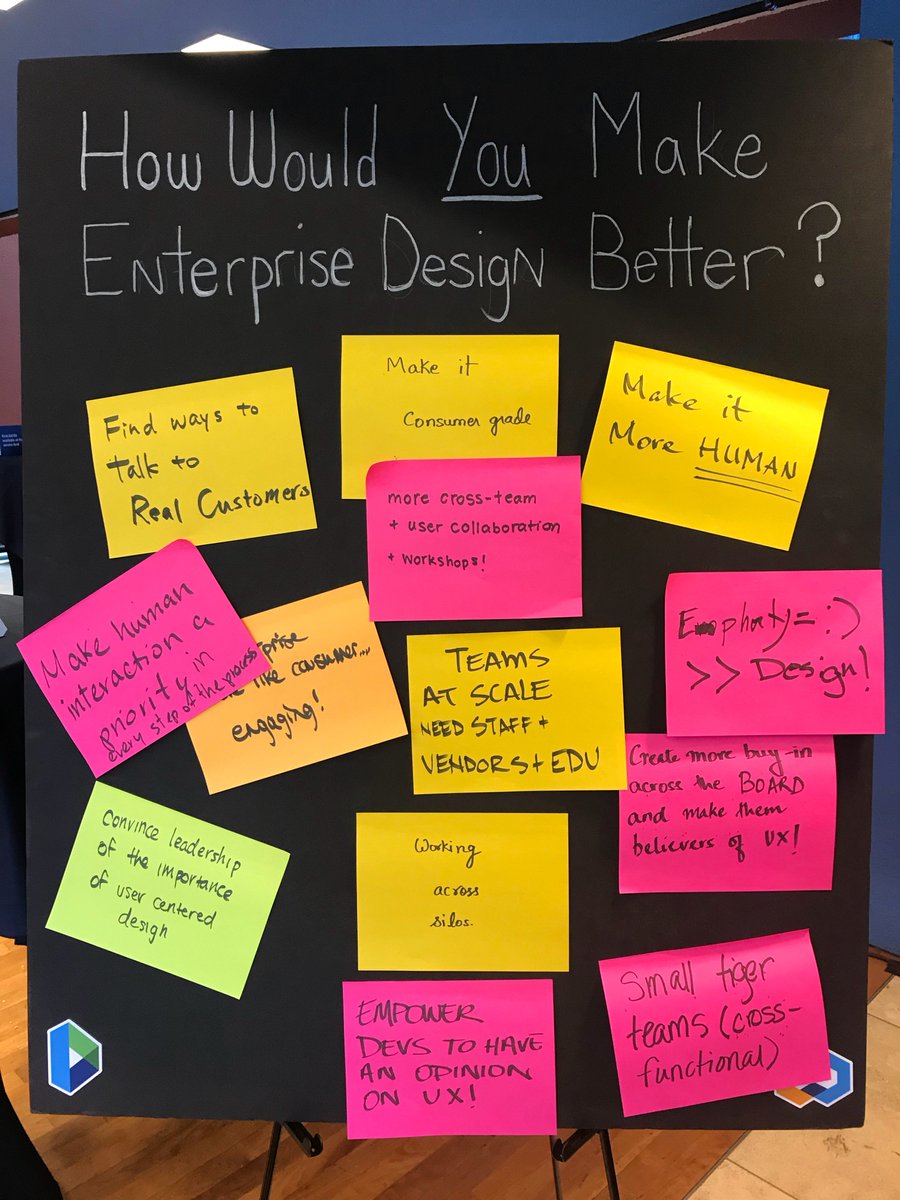 How Would You Make
Enterprise Design Better?
Find ways to
talk to
Real Customers
Make it
Consumer grade
Make it
More HUMAN
more cross-team
+ user collaboration
+ workshops!
Make human
interaction a
priority in
every step of the process
like consumer...
engaging!
TEAMS
AT SCALE
NEED STAFF +
VENDORS + EDU
>> Design!
Create more buy-in
across the BOARD
and make them
believers of UX!
Convince leadership
of the importance
of user centered
design
Working
across
silos.
EMPOWER
DEVS TO HAVE
AN OPINION
ON UX!
Small tiger
teams (cross-
functional)